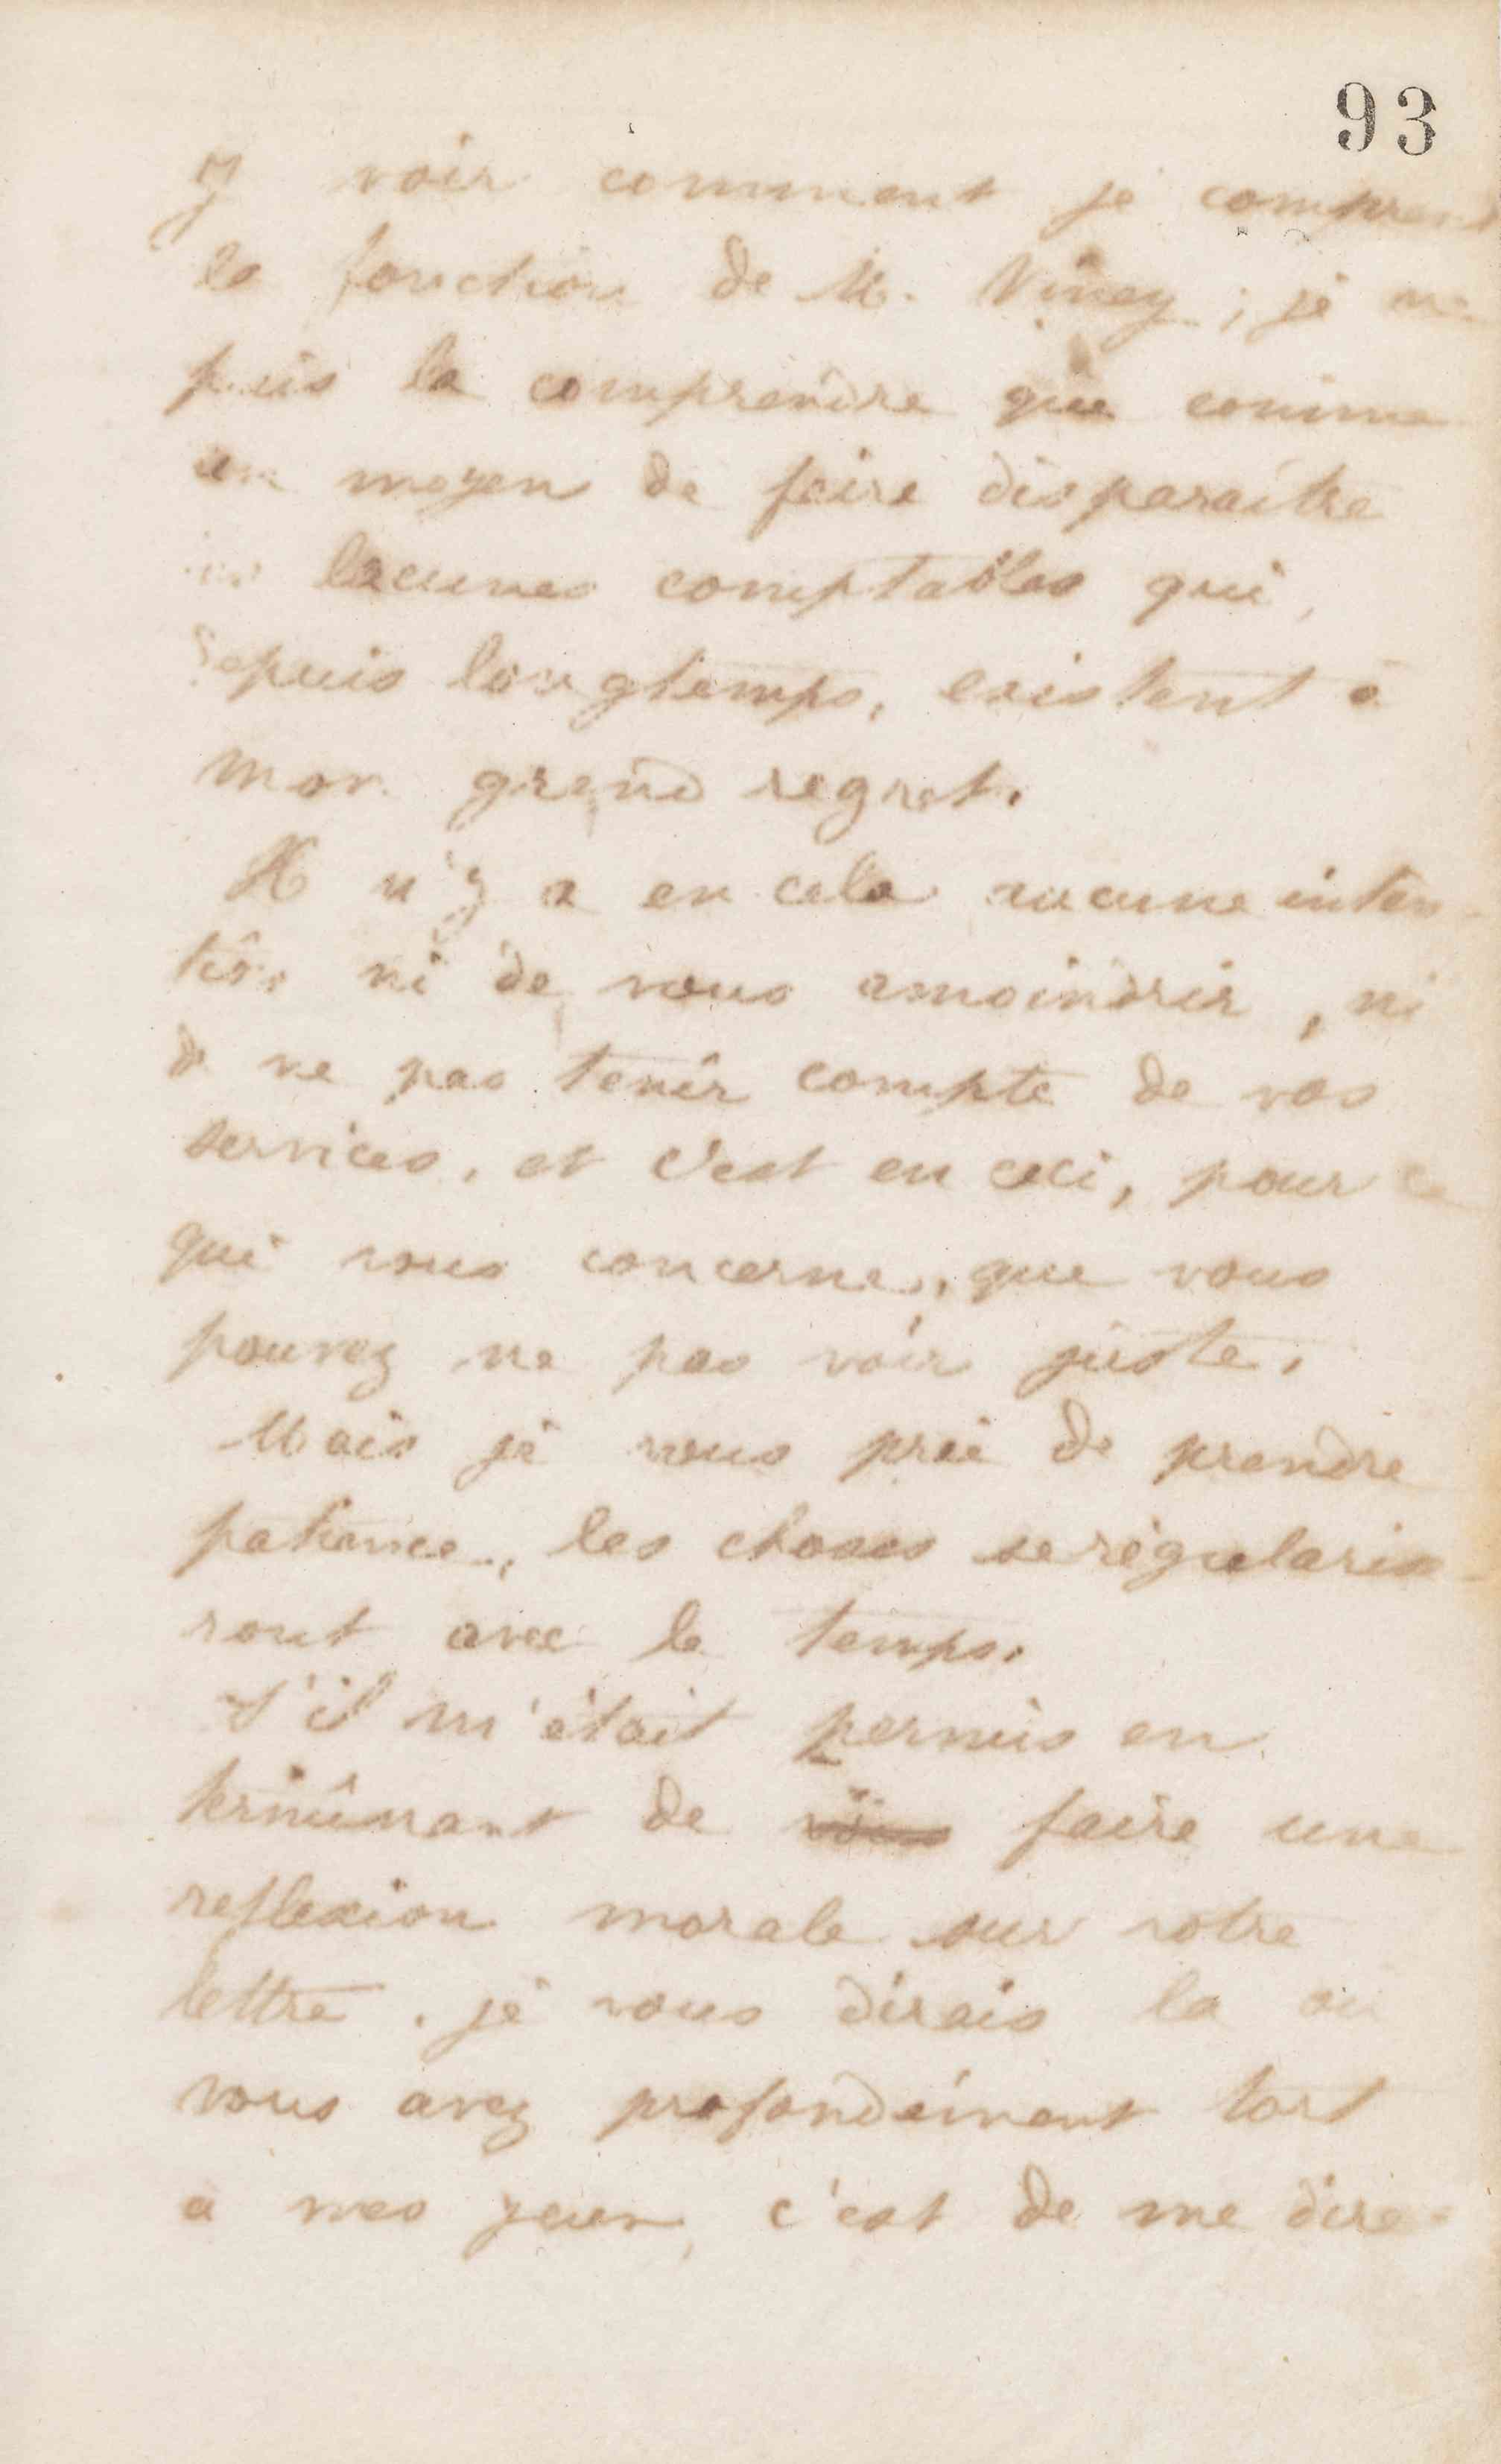 93
y voir comment je comprends
la fonction de M. Viney ; je ne
puis la comprendre que comme
un moyen de faire disparaître
les lacunes comptables qui,
depuis longtemps, existent à
mon grand regret.
Il n'y a en cela aucune inten-
tion ni de vous amoindrir, ni
de ne pas tenir compte de vos
services, et c'est en ceci, pour ce
qui vous concerne, que vous
pouvez ne pas voir juste.
Mais je vous prie de prendre
patience, les choses se régularise-
ront avec le temps.
S'il m'était permis en
terminant de vous faire une
reflexion morale sur votre
lettre, je vous dirais la où
vous avez profondément tort
a mes yeux, c'est de me dire